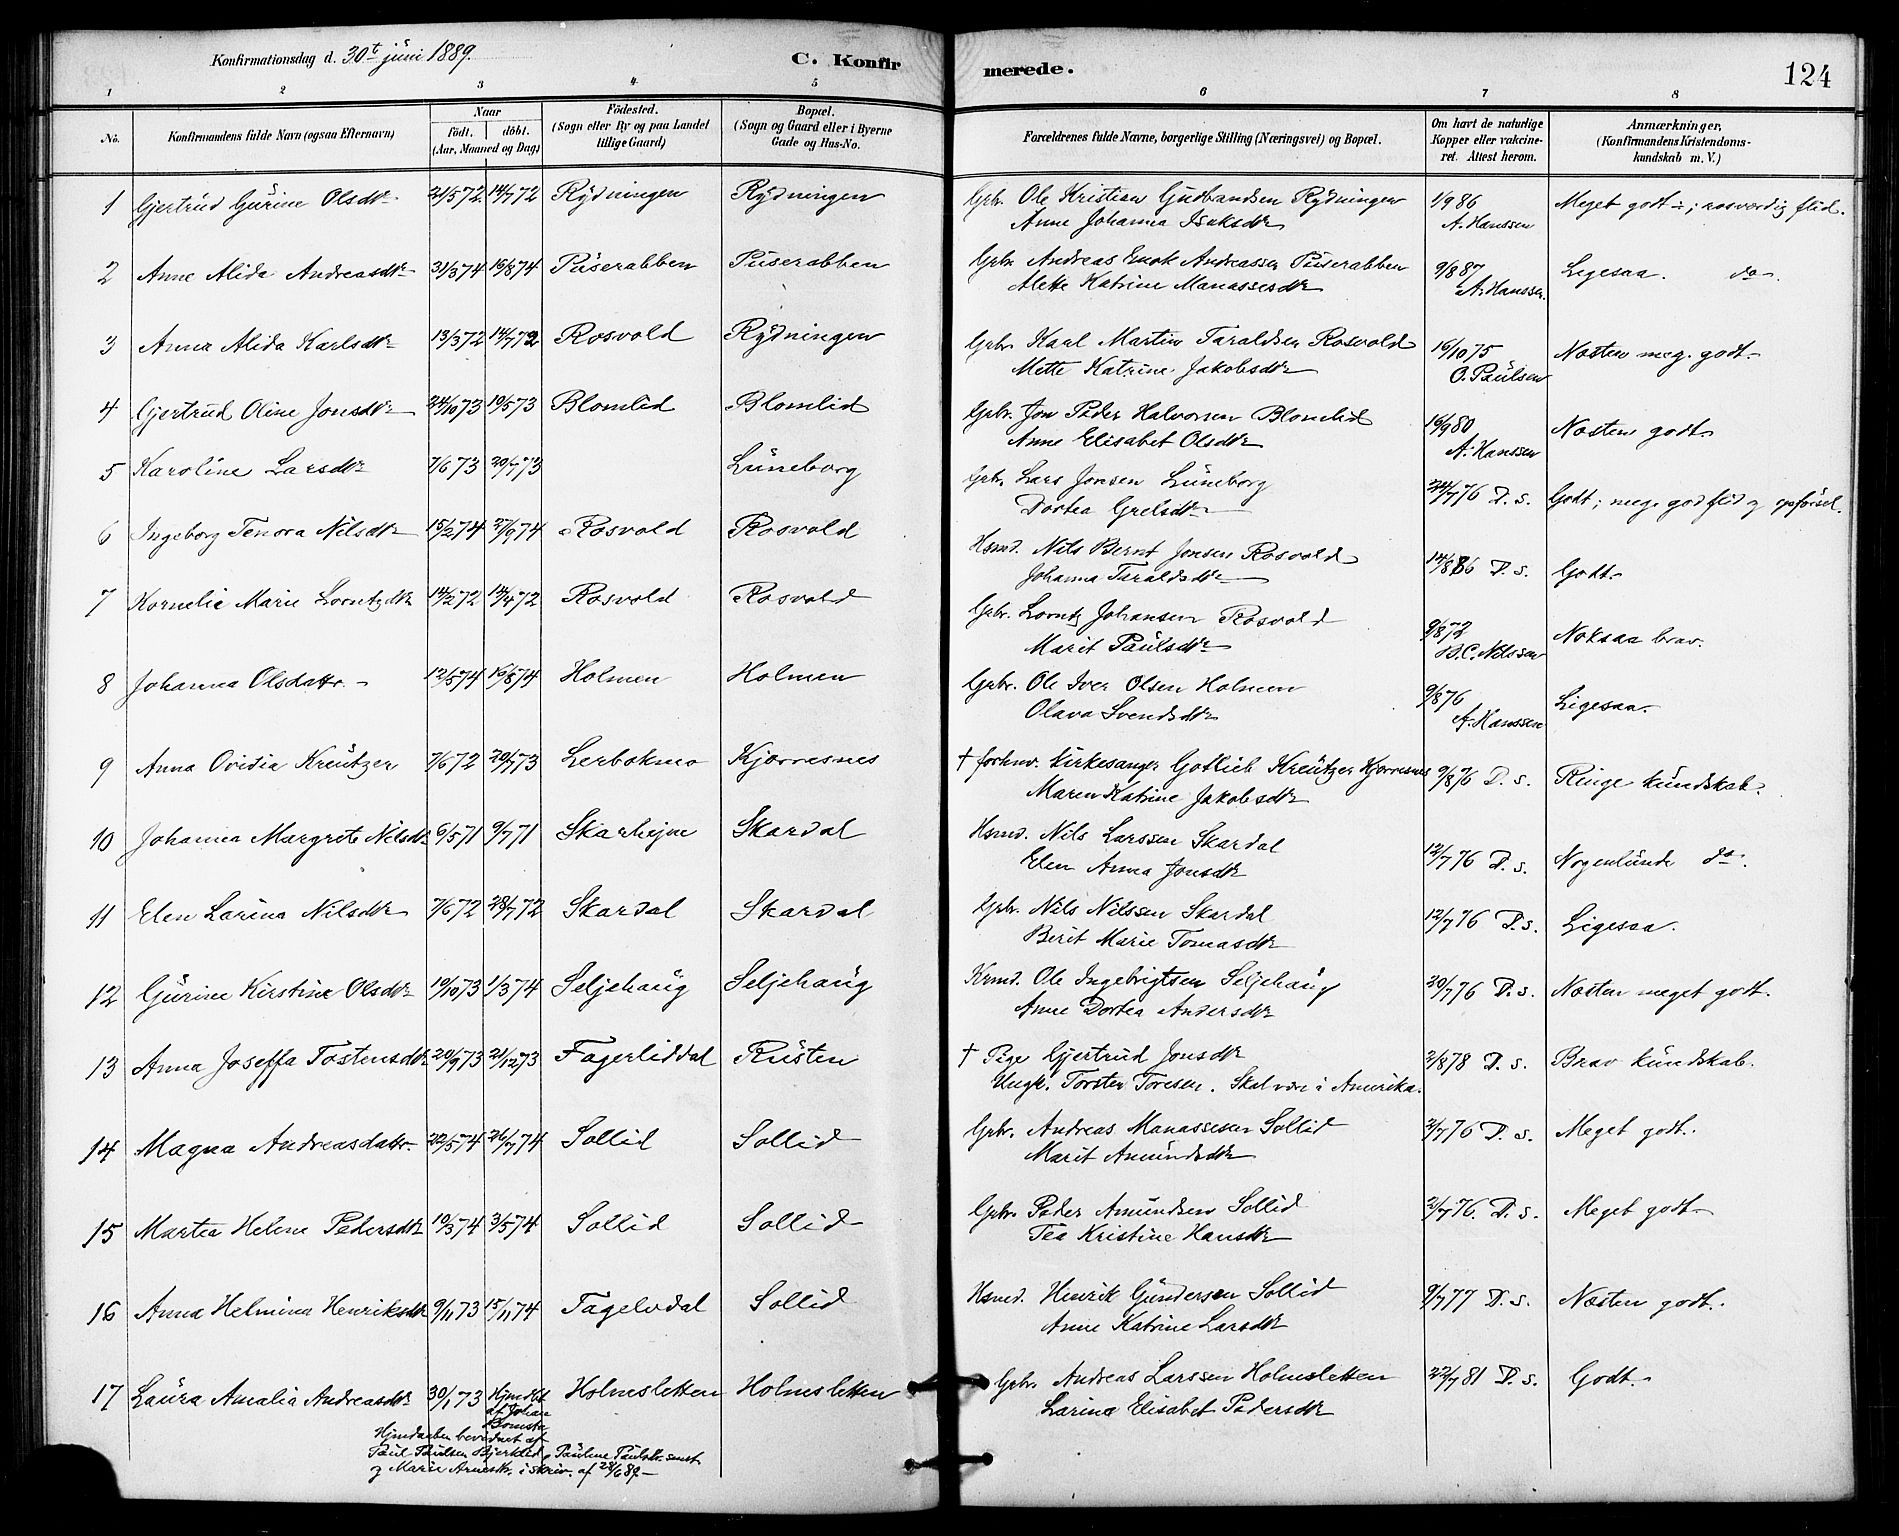 Konfirmationsdag d. 30t juni 1889.
C. Konfirmerede.
124
1 2 3 4 5 6 7 8
No.
Konfirmandens fulde Navn (ogsaa Efternavn)
Naar
födt. döbt.
(Aar, Maaned og Dag)
Födested.
(Sogn eller By og paa Landet
tillige Gaard)
Bopæl.
(Sogn og Gaard eller i Byerne
Gade og Hus-No.
Forældrenes fulde Navne, borgerlige Stilling (Næringsvei) og Bopæl.
Om havt de naturlige
Kopper eller vakcine-
ret. Attest herom.
Anmærkninger,
(Konfirmandens Kristendoms-
kundskab m. V.)
1 Gjertrud Gurine Olsdtr 21/5 72 14/7 72 Rydningen Rydningen Gbr. Ole Kristian Gudbandsen Rydningen 1/9 86 Meget godt; rosværdig flid.
Anne Johanna Isaksdtr A. Hanssen
2 Anne Alida Andreasdtr 31/3 74 16/8 74 Puserabben Puserabben Gbr. Andreas Enok Andreassen Puserabben 9/8 87 Ligesaa. do.
Mette Katrine Manassesdtr A. Hanssen.
3 Anna Alida Karlsdtr 13/3 72 14/7 72 Rosvold Rydningen Gbr. Karl Martin Taraldsen Rosvold 16/10 75 Næsten meg. godt
Mette Katrine Jakobsdtr O. Paulsen
4 Gjertrud Oline Jonsdtr 24/10 73 19/5 73 Blomlid Blomlid Gbr. Jon Peder Halvorsen Blomlid 16/9 80 Næsten godt
Anne Elisabet Olsdtr A. Hanssen
5 Karoline Larsdtr 7/6 73 20/7 73 Luneborg Gbr. Lars Jonsen Luneborg 24/7 76 D. s. Godt; meget god flid og opførsel.
Dortea Grelsdtr
6 Ingeborg Tenora Nilsdtr 15/2 74 27/9 74 Rosvold Rosvold Hsmd. Nils Bernt Jonsen Rosvold 14/8 86 D. s. Godt
Johanna Taraldsdtr
7 Kornelie Marie Lorntzdtr 14/2 72 14/4 72 Rosvold Rosvold Gbr. Lorntz Johansen Rosvold 9/8 72 Noksaa brav.
Marit Paulsdtr B. C. Nilssen
8 Johanna Olsdattr. 12/5 74 16/8 74 Holmen Holmen Gbr. Ole Iver Olsen Holmen 9/8 76 Ligesaa.
Olava Svendsdtr A. Hanssen
9 Anna Ovidia Kreutzer 7/6 72 20/7 73 Lerbakmo Kjerresnes † forhnv. kirkesanger Gotlieb Kreutzer Kjerresnes 9/8 76 D. s. Ringe kundskab.
Maren Katrine Jakobsdtr
10 Johanna Margrete Nilsdtr 6/5 71 9/7 71 Skardal Hsmd. Nils Larssen Skardal 12/7 76 D. s. Nogenlunde do.
Elen Anna Jonsdtr
11 Elen Larina Nilsdtr 7/6 72 28/7 72 Skardal Skardal Gbr. Nils Nilssen Skardal 12/7 76 D. s. Ligesaa.
Berit Marie Tomasdtr
12 Gurine Kirstine Olsdtr 19/10 73 1/3 74 Seljehaug Seljehaug Ole Ingebrigtsen Seljehaug 20/7 76 D. s. Næsten meget godt.
Anne Dortea Andersdtr
13 Anna Joseffa Tostensdtr 20/9 73 21/12 73 Fagerliddal Rusten † Pige Gjertrud Jonsdtr 2/8 78 D. s. Brav kundskab.
Ungk. Torsten Toresen. Skal være i Amerika.
14 Magna Andreasdattr 22/5 74 26/7 74 Sollid Sollid Gbr. Andreas Manassesen Sollid 2/7 76 D. s. Meget godt.
Marit Amundsdtr
15 Martea Helene Pedersdtr 19/3 74 3/5 74 Sollid Sollid Gbr. Peder Amundsen Sollid 2/7 76. D. s. Meget godt
Tea Kristine Hansdtr
16 Anna Helmina Henriksdtr 9/11 73 15/11 74 Fagelidal Sollid Hsmd. Henrik Gundersen Sollid 9/7 77 D. s. Næsten godt.
Anne Katrine Larsdtr
17 Laura Amalia Andreasdtr 30/1 73 Hjmdbt Holmesletten Holmesletten Gbr. Andreas Larssen Holmesletten 22/7 81 D. s. Godt.
af Johan Larina Elisabet Pedersdtr
Hjmdaaben bevidnet af
Paul Paulsen Bjerklid, Pauline Paulsdtr. smst.
og Marie Arnesdtr. i skriv. af 28/6 89